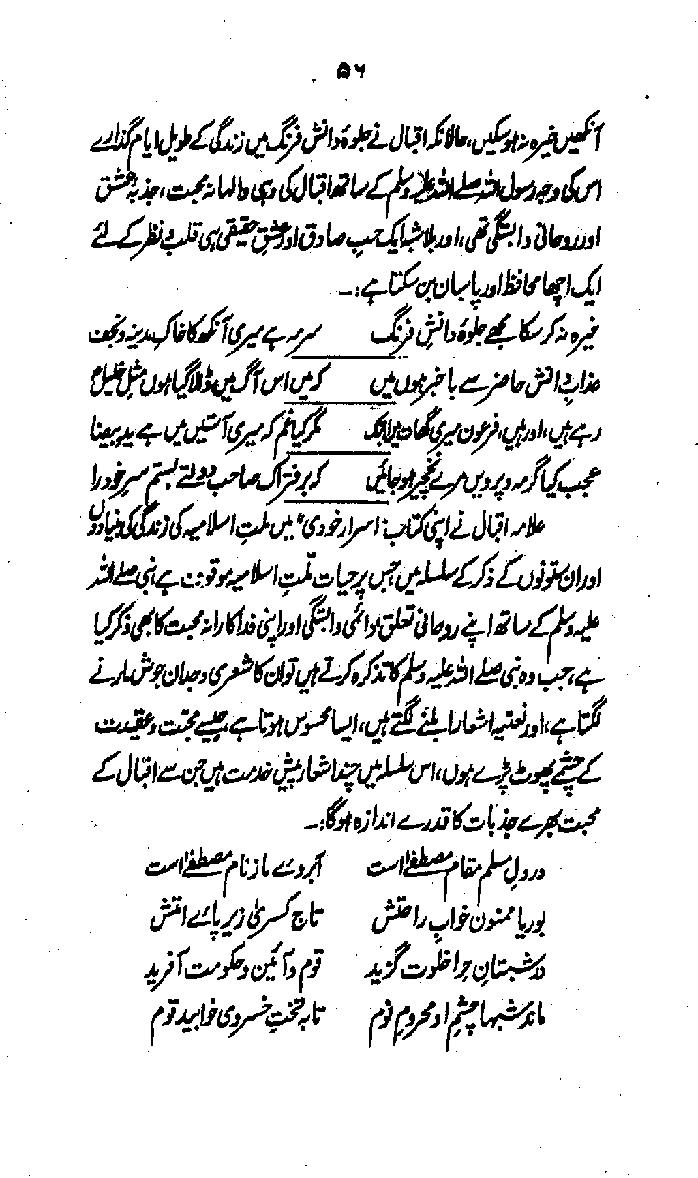 ۵۶
آنکھیں خیرہ نہ ہوسکیں، حالانکہ اقبال نے جلوۂ دانش فرنگ میں زندگی کے طویل ایام گذارے
اس کی وجہ رسول اللہ صلے اللہ علیہ وسلم کے ساتھ اقبال کی وہی والہانہ محبت، جذبۂ عشق
اور روحانی وابستگی تھی، اور بلاشبہ ایک حبِ صادق اور عشقِ حقیقی ہی قلب و نظر کے لئے
ایک اچھا محافظ اور پاسبان بن سکتا ہے:۔
خیرہ نہ کر سکا مجھے جلوۂ دانشِ فرنگ سرمہ ہے میری آنکھ کا خاک مدینہ و نجف
عذابِ دانش حاضر سے باخبر ہوں میں کہ میں اس آگ میں ڈالا گیا ہوں مثلِ خلیلؑ
رہے ہیں، اور ہیں، فرعون میری گھات میں ابتک مگر کیا غم کہ میری آستیں میں ہے یدِ بیضا
عجب کیا گر مہ و پرویں مرے نخچیر ہو جائیں کہ بر فتراک صاحب دولتے بستم سرِ خود را
علامہ اقبال نے اپنی کتاب "اسرار خودی" میں ملت اسلامیہ کی زندگی کی بنیادوں
اور ان ستونوں کے ذکر کے سلسلہ میں جس پر حیات ملّتِ اسلامیہ موقوف ہے، نبی صلے اللہ
علیہ وسلم کے ساتھ اپنے روحانی تعلق، دائمی وابستگی اور اپنی فداکارانہ محبت کا بھی ذکر کیا
ہے، جب وہ نبی صلے اللہ علیہ وسلم کا تذکرہ کرتے ہیں تو ان کا شعری وجدان جوش مارنے
لگتا ہے، اور نعتیہ اشعار ابلنے لگتے ہیں، ایسا محسوس ہوتا ہے، جیسے محبّت و عقیدت
کے چشمے پھوٹ پڑے ہوں، اس سلسلہ میں چند اشعار پیش خدمت ہیں جن سے اقبال کے
محبت بھرے جذبات کا قدرے اندازہ ہوگا:۔
در دلِ مسلم مقام مصطفےٰؐ است آبروئے ما ز نام مصطفےٰؐ است
بوریا ممنون خوابِ راحتش تاج کسریٰ زیر پائے امتش
در شبستانِ حرا خلوت گزید قوم و آئین و حکومت آفرید
ماند شبہا چشمِ او محرومِ نوم تا بہ تختِ خسروی خوابید قوم